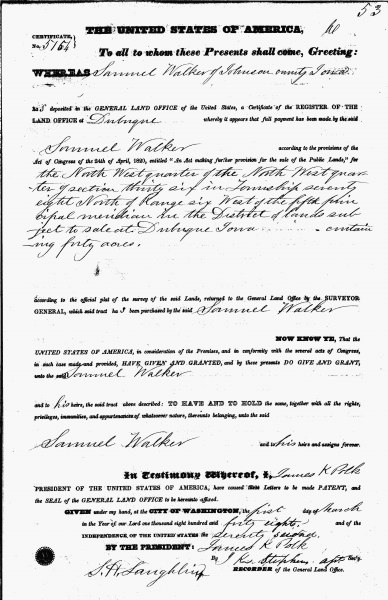 53
THE UNITED STATES OF AMERICA,
CERTIFICATE
No. 5154
To all to whom these Presents shall come, Greeting:
WHEREAS Samuel Walker of Johnson County Iowa
ha s deposited in the GENERAL LAND OFFICE of the United States, a Certificate of the REGISTER OF THE
LAND OFFICE at Dubuque whereby it appears that full payment has been made by the said
Samuel Walker according to the provisions of the
Act of Congress of the 24th of April, 1820, entitled "An Act making further provision for the sale of the Public Lands," for
the North West quarter of the North West quar-
ter of section thirty six in Township seventy
eight North of Range six West of the fifth prin
cipal meridian in the District of lands sub
ject to sale at Dubuque Iowa contain
ing forty acres.
according to the official plat of the survey of the said Lands, returned to the General Land Office by the SURVEYOR
GENERAL, which said tract ha s been purchased by the said Samuel Walker
NOW KNOW YE, That the
UNITED STATES OF AMERICA, in consideration of the Premises, and in conformity with the several acts of Congress,
in such case made and provided, HAVE GIVEN AND GRANTED, and by these presents DO GIVE AND GRANT,
unto the said Samuel Walker
and to his heirs, the said tract above described: TO HAVE AND TO HOLD the same, together with all the rights,
privileges, immunities, and appurtenances of whatsoever nature, thereunto belonging, unto the said
Samuel Walker and to his heirs and assigns forever.
In Testimony Whereof, I, James K Polk
PRESIDENT OF THE UNITED STATES OF AMERICA, have caused these Letters to be made PATENT, and
the SEAL of the GENERAL LAND OFFICE to be hereunto affixed.
GIVEN under my hand, at the CITY OF WASHINGTON, the first day of March
in the Year of our Lord one thousand eight hundred and forty eight and of the
INDEPENDENCE OF THE UNITED STATES the seventy second
BY THE PRESIDENT: James K Polk
By J. K. Stephens asst Sec'y.
S. H. Laughlin RECORDER of the General Land Office.